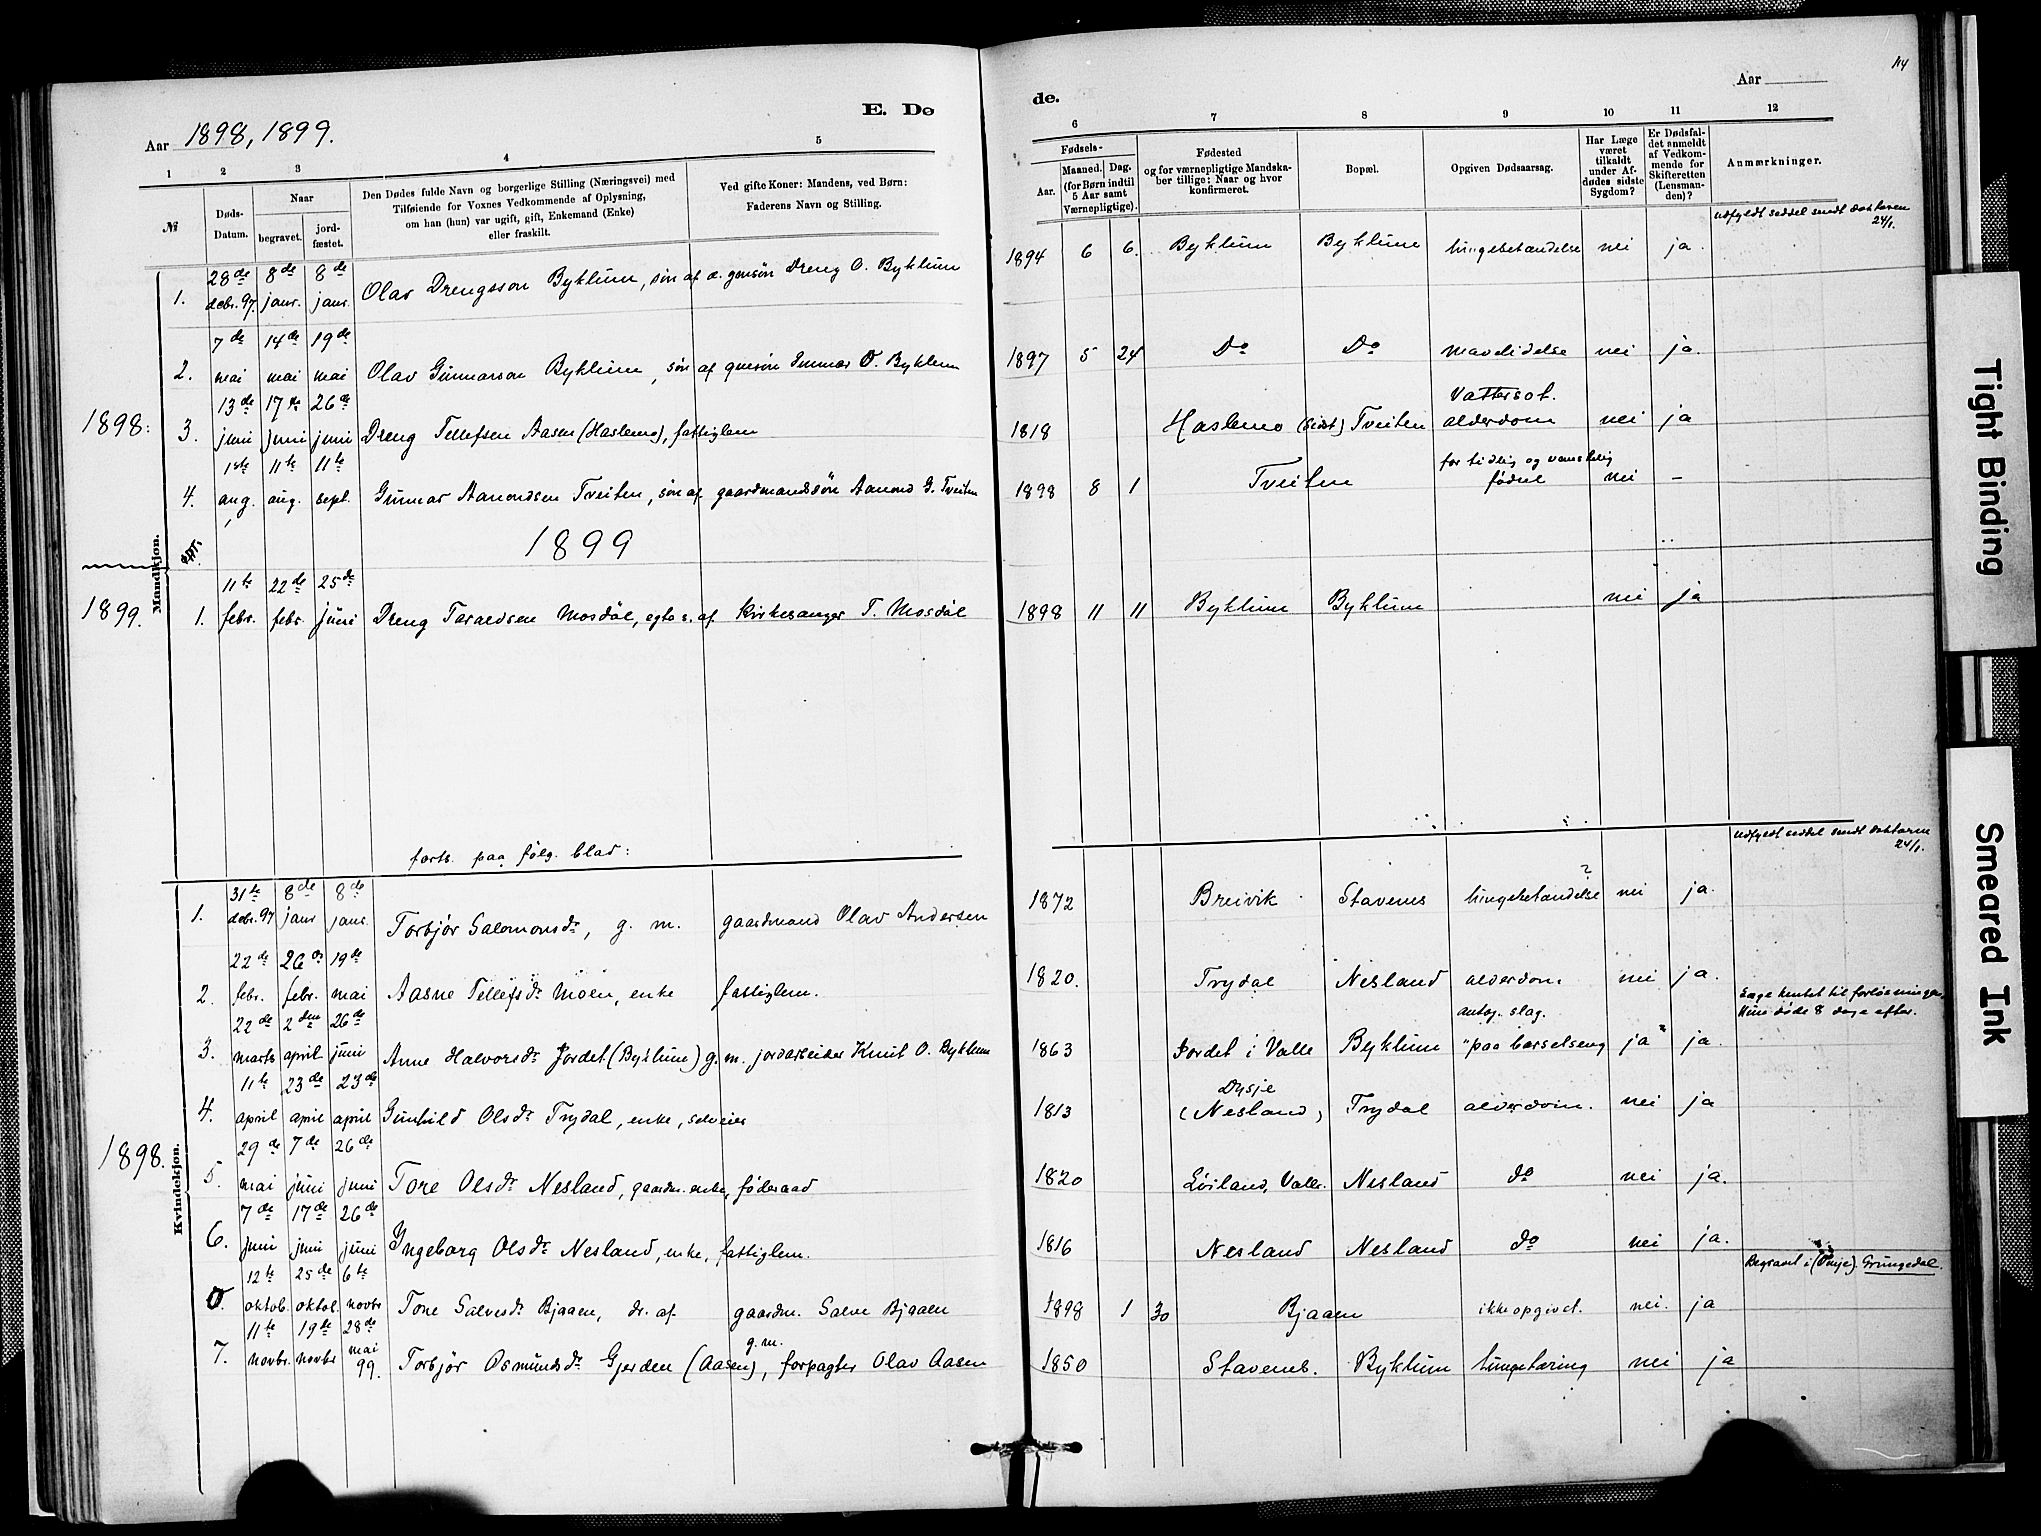 114
E. Dø
de.
Aar 1898, 1899.
Aar
1 2 3 4 5 6 7 8 9 10 11 12
№
Døds-Datum.
Naar
begravet.
jordfæstet.
Den Dødes fulde Navn og borgerlige Stilling (Næringsvei) med
Tilføiende for Voxnes Vedkommende af Oplysning,
om han (hun) var ugift, gift, Enkemand (Enke)
eller fraskilt.
Ved gifte Koner: Mandens, ved Børn:
Faderens Navn og Stilling.
Fødsels-
Aar. Maaned. Dag.
(for Børn indtil
5 Aar samt
Værnepligtige).
Fødested
og for værnepligtige Mandska-
ber tillige: Naar og hvor
konfirmeret.
Bopæl.
Opgiven Dødsaarsag.
Har Læge
været
tilkaldt
under Af-
dødes sidste
Sygdom?
Er Dødsfal-
det anmeldt
af Vedkom-
mende for
Skifteretten
(Lensman-
den)?
Anmærkninger.
Mandkjøn.
1898:
1. 28de decbr. 97. 8de janr. 8de janr. Olav Drengsson Byklum, søn af d. gmsøn Dreng O. Byklum 1894 6 6. Byklum Byklum lungebetændelse nei ja. udfyldt seddel sendt doktoren 24/1.
2. 7de mai 14de mai 19de mai Olav Gunnarson Byklum, søn af gmsøn Gunnar O. Byklum 1897 5 24 Do Do mavelidelse nei ja.
3. 13de juni 17de juni 26de juni Dreng Tellefsen Aasen (Haslemo), fattiglem 1818 Haslemo (sidst) Tveiten Vattersot. alderdom nei ja
4. 1ste aug. 11te aug. 11te sept. Gunnar Aamondsen Tveiten, søn af gaardmandssøn Aamond G. Tveiten 1898 8 1 Tveiten for tidlig og vanskelig fødsel nei –
1899
1899.
1. 11te febr. 22de febr. 25de juni Dreng Taraldsen Mosdøl, egte s. af Kirkesanger T. Mosdøl 1898 11 11 Byklum Byklum nei ja
forts. paa følg. blad:
Kvindekjøn.
1898.
1. 31te decbr. 97 8de janr 8de janr. Torbjør Salomonsdr, g. m. gaardmand Olav Andersen 1872 Breivik Stavenes lungebetændelse ? nei ja. udfyldt seddel sendt doktoren 24/1.
2. 22de febr. 26de febr. 19de mai Aasne Tellefsdr Moen, enke fattiglem. 1820. Trydal Nesland alderdom nei ja.
3. 22de marts 2den april 26de juni Anne Halvorsdr Jordet (Byklum) g. m. jordarbeider Knut O. Byklum 1863 Jordet i Valle Byklum antag. slag. "paa barselseng ja" ja. Læge hentet til forløsningen, Hun døde 8 dage efter.
4. 11te april 23de april 23de april Gunhild Olsdr Trydal, enke, selveier 1813 Dysje (Nesland) Trydal alderdom. nei ja
5. 29de mai 7de juni 26de juni Tore Olsdr Nesland, gaardm. enke, føderaad 1820 Løiland, Valle. Nesland do nei ja.
6. 7de juni 17de juni 26de juni Yngeborg Olsdr Nesland, enke, fattiglem. 1816 Nesland Nesland do nei ja.
0. 12te oktob. 25de oktob. 6te novbr Tone Salvesdr Bjaaen, dr. af gaardm. Salve Bjaaen 1898 1 30 Bjaaen ikke opgivet. nei. ja Begravet i Grungedal.
7. 11te novbr. 19de novbr 28de mai 99. Torbjør Osmundsdr Gjerden (Aasen), g. m. forpagter Olav Aasen 1850 Stavenes. Byklum lungetæring nei ja
Tight Binding
Smeared Ink